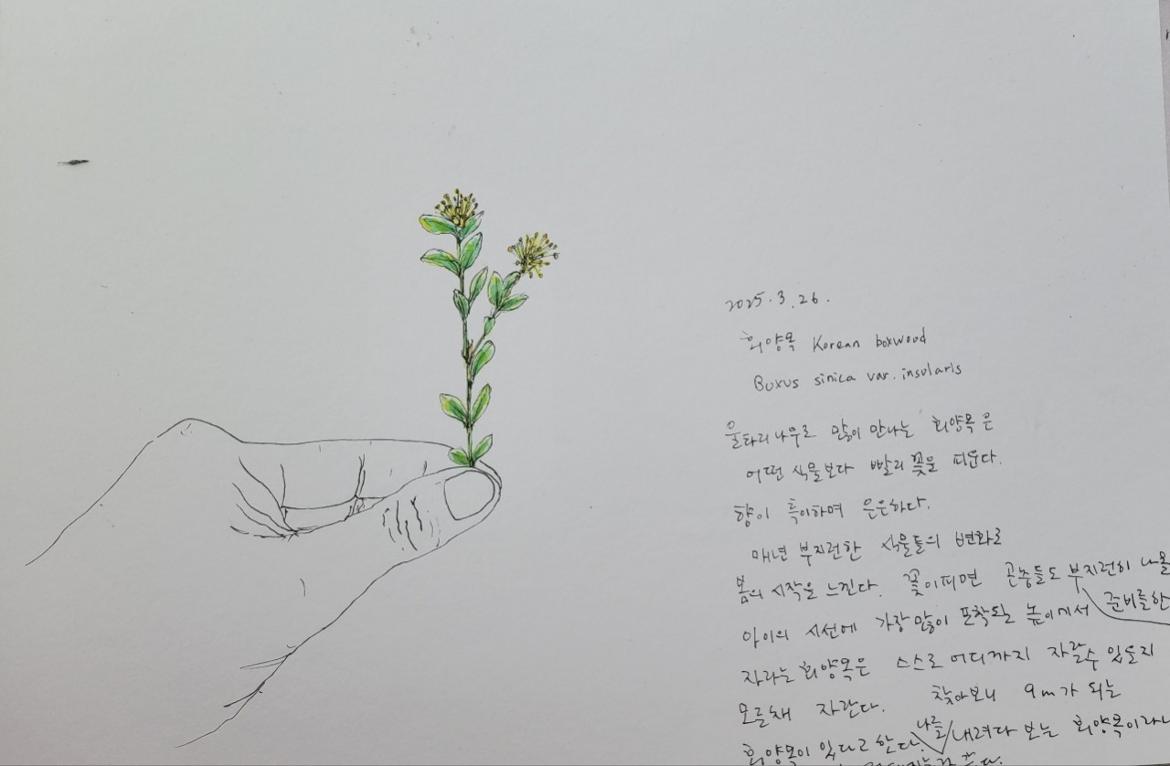 2025.3.26.
회양목 Korean boxwood
Buxus sinica var. insularis
울타리나무로 많이 만나는 회양목은
어떤 식물보다 빨리 꽃을 피운다.
향이 특이하며 은은하다.
매년 부지런한 식물들의 변화로
봄의 시작을 느낀다. 꽃이피면 곤충들도 부지런히 나올
준비를한
아이의 시선에 가장많이 포착될 높이에서
자라는 회양목은 스스로 어디까지 자랄수 있을지
모른채 자란다. 찾아보니 9m가 되는
회양목이 있다고 한다. 나를 내려다 보는 회양목이라니